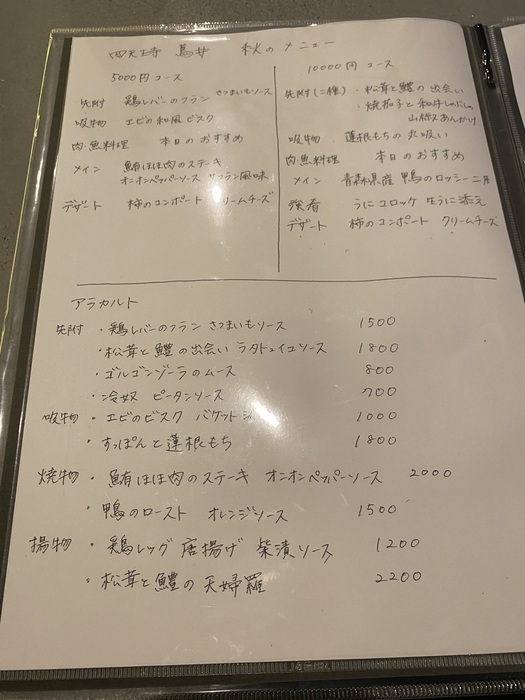 四天王寺 鳥井 秋のメニュー
5000円コース
先附 鶏レバーのフラン さつまいもソース
吸物 エビの和風ビスク
肉・魚料理 本日のおすすめ
メイン 鮪ほほ肉のステーキ
オニオンペッパーソース サフラン風味
デザート 柿のコンポート クリームチーズ
10000円コース
先附(二種) ・松茸と鱧の出会い
・焼茄子と和牛しゃぶしゃぶ
山椒あんかけ
吸物 蓮根もちの丸吸い
肉・魚料理 本日のおすすめ
メイン 青森県産 鴨のロッシーニ
強肴 うにコロッケ 生うに添え
デザート 柿のコンポート クリームチーズ
アラカルト
先附 ・鶏レバーのフラン さつまいもソース 1500
・松茸と鱧の出会い ラタトゥイユソース 1800
・ゴルゴンゾーラのムース 800
・冷奴 ピータンソース 700
吸物 ・エビのビスク バケット 1000
・すっぽんと蓮根もち 1800
焼物 ・鮪ほほ肉のステーキ オニオンペッパーソース 2000
・鴨のロースト オレンジソース 1500
揚物 ・鶏レッグ 唐揚げ 柴漬ソース 1200
・松茸と鱧の天婦羅 2200